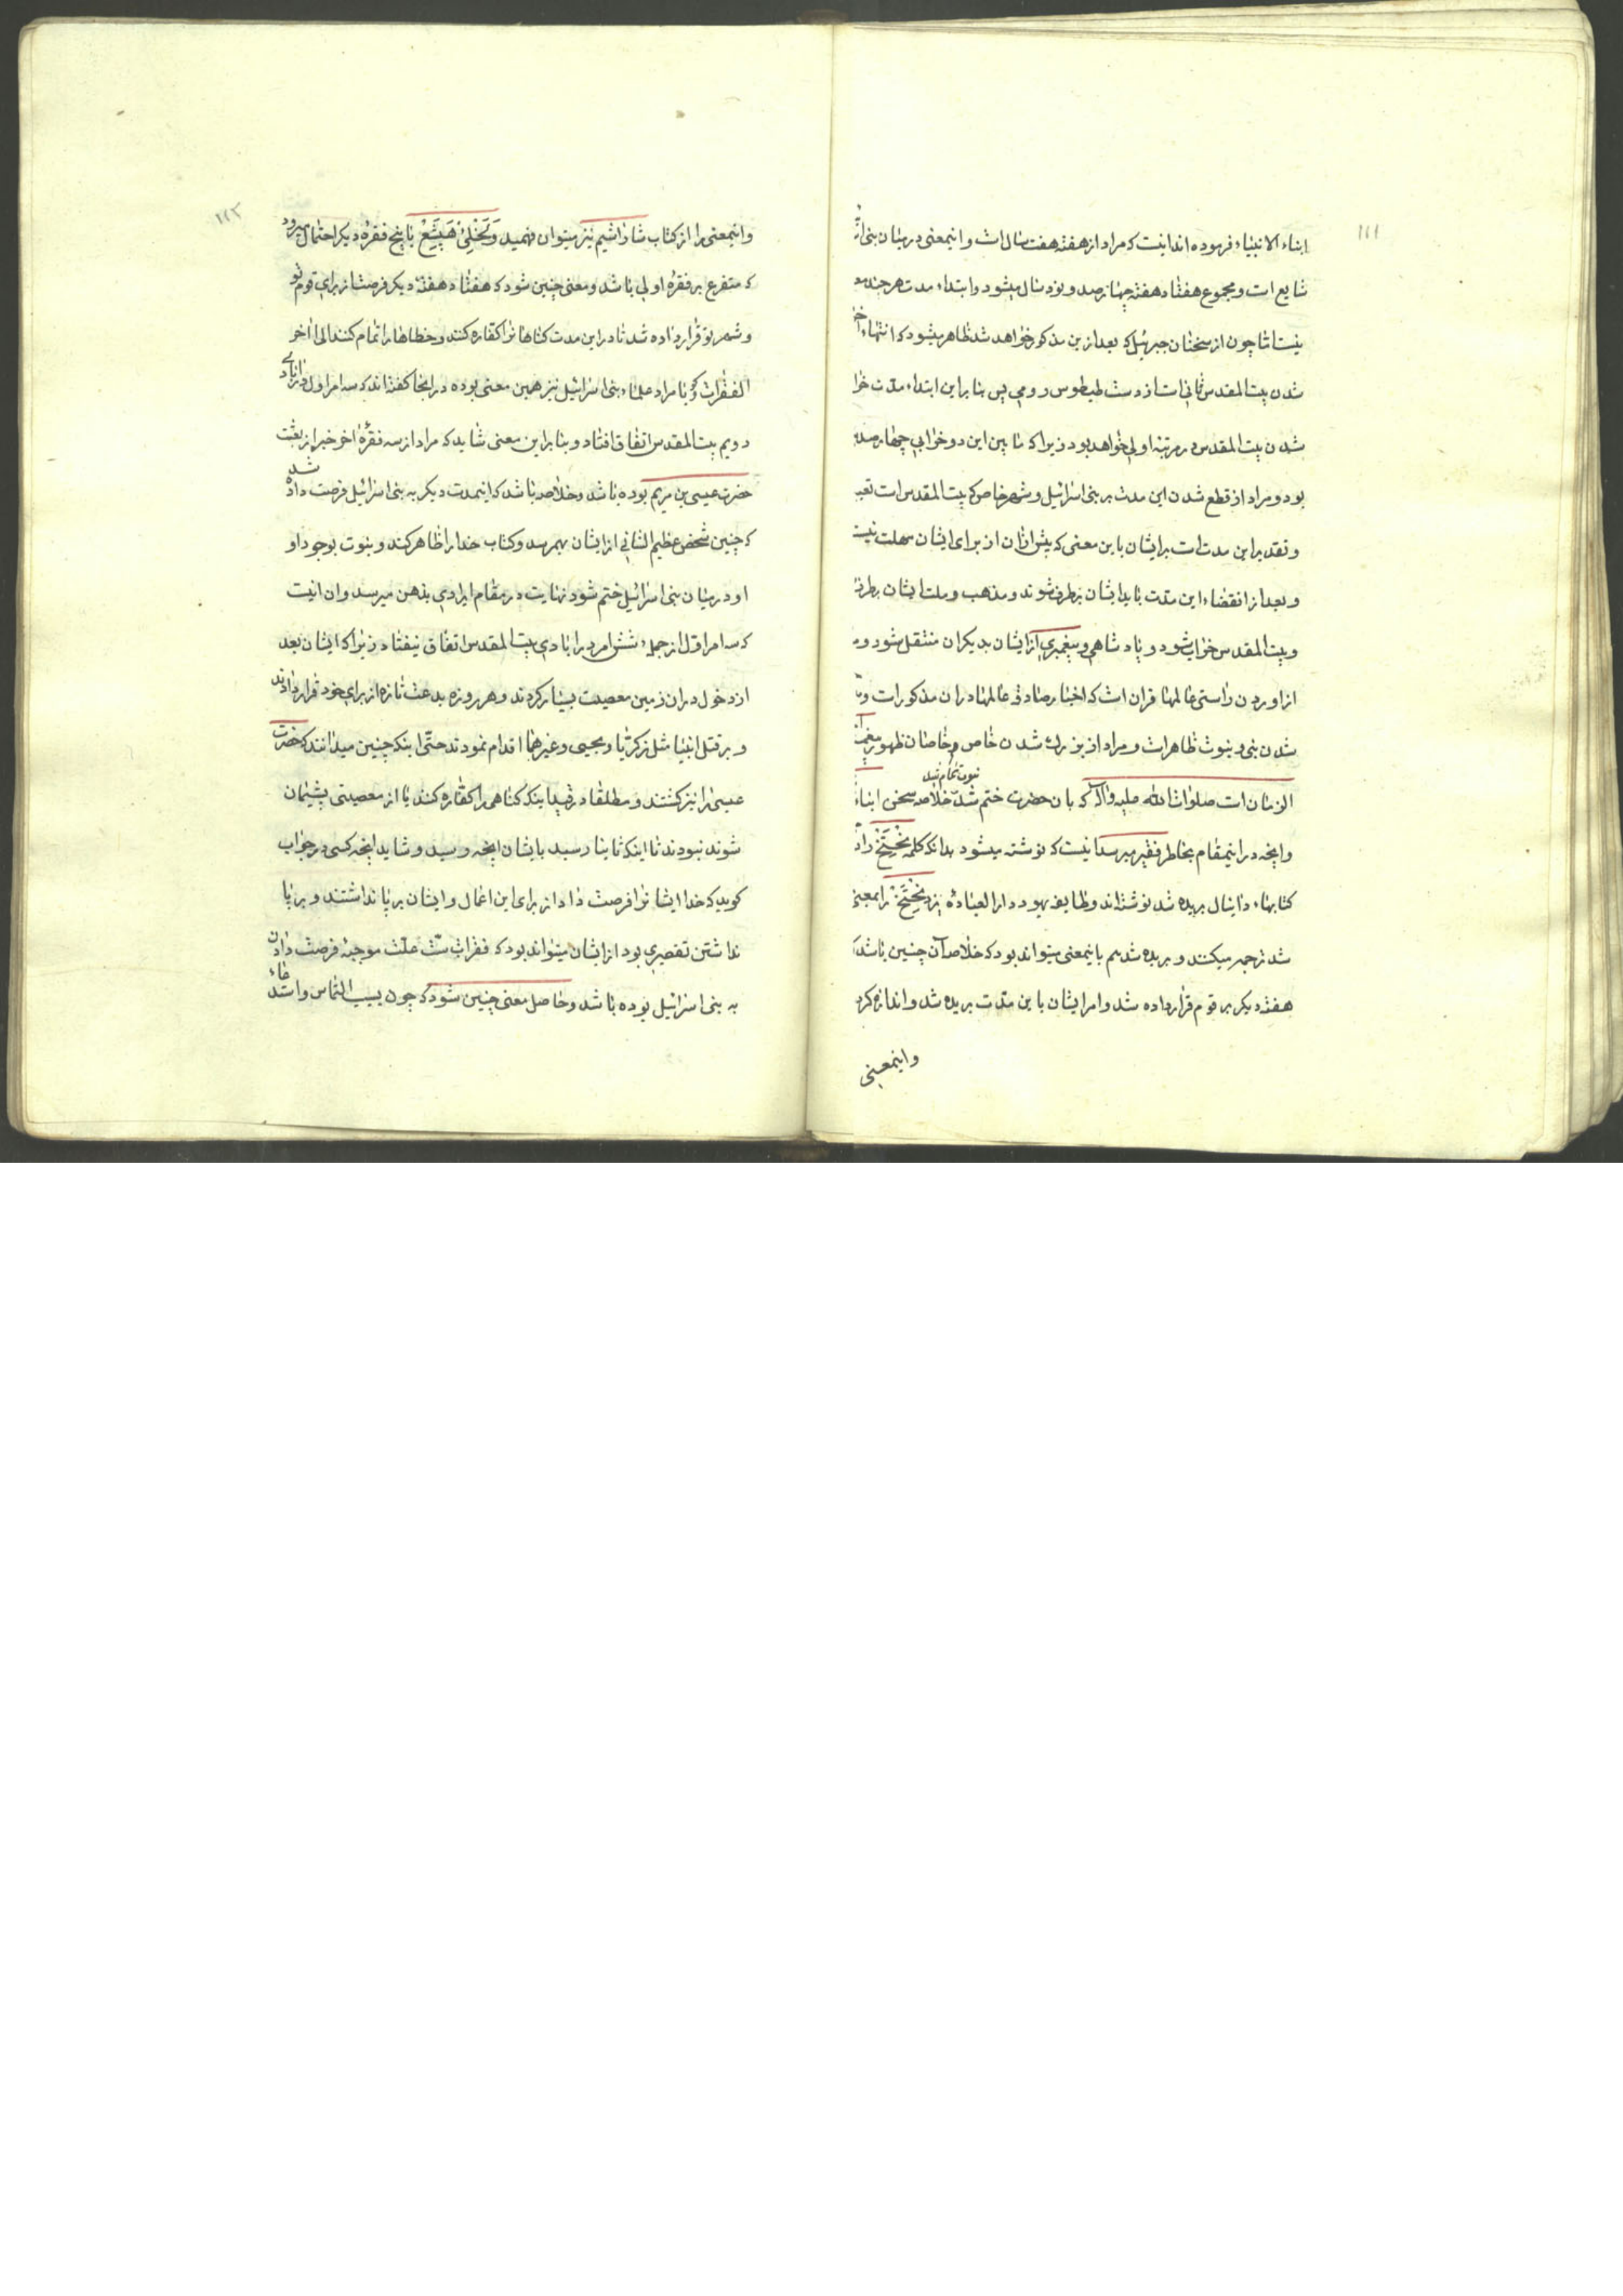 ١١١
ابناء الانبیاء فرموده اند اینست که مراد از هفته هفت سال است و اینمعنی در میان بنی
شایع است و مجموع هفتاد هفته چهار صد و نود سال میشود و ابتداء مدت هر چند
نیست اما چون از سخنان جبرئیل که بعد ازین مذکور خواهد شد ظاهر میشود که انتهاء
شدن بیت المقدس ثانی است از دست طیطوس رومی پس بنا براین ابتداء مدت
شدن بیت المقدس در مرتبه اولی خواهد بود زیرا که ما بین این دو خرابی چهار صد
بود و مراد از قطع شدن این مدت بر بنی اسرائیل و شهر خاص که بیت المقدس است
و تقدیر این مدت است برایشان باین معنی که پیش ازان از برای ایشان مهلت نیست
و بعد از انقضاء این مدت باید ایشان برطرف شوند و مذهب و ملت ایشان
و بیت المقدس خراب شود و پادشاهی و پیغمبری از ایشان بدیگران منتقل شود
از اوردن راستی عالمها قران است که اخبار صادق عالمها دران مذکور است
شدن نبی و نبوت ظاهر است و مراد از بزرك شدن خاص خاصان ظهور پیغمبر
نبوت تمام شد
الزمان است صلوات الله علیه واله که بان حضرت ختم شد خلاصه سخن ابناء
وانچه در اینمقام بخاطر فقیر میرسد اینست که نوشته میشود بدانکه کلمه نِحْتَخْ
کتابهاء دانیال بریده شد نوشته اند و طایفه یهود دار العباده یزد نِحْتَخْ را بمعنی
شد ترجمه میکنند و بریده شد هم باینمعنی میتواند بود که خلاصه آن چنین باشد
هفته دیگر بر قوم قرار داده شد و امر ایشان باین مدت بریده شد و اندازه
و اینمعنی
١١٢
و اینمعنی را از کتاب شاراشیم نیز میتوان فهمید وَتَخْلِیْ هَپِشَعْ با پنج فقره دیگر احتمال میرود
که متفرع بر فقره اولی باشد و معنی چنین شود که هفتاد هفته دیگر فرصت از برای قوم تو
و شهر تو قرار داده شد تا در این مدت گناهانرا کفاره کنند و خطاها را تمام کنند الی اخر
الفقرات و گویا مراد علماء بنی اسرائیل نیز همین معنی بوده در اینجا گفته اند که سه امر اول در ابادی
دویم بیت المقدس اتفاق افتاد و بنا براین معنی شاید که مراد از سه فقرهٔ اخر خبر از بعثت
حضرت عیسی بن مریم بوده باشد و خلاصه باشد که اینمدت دیگر به بنی اسرائیل فرصت داده شد
که چنین شخص عظیم الشانی از ایشان بهمرسد و کتاب خدا را ظاهر کند و نبوت بوجود او
او در میان بنی اسرائیل ختم شود نهایت در مقام ایرادی بذهن میرسد وان اینست
که سه امر اول از جمله شش امر در ابادی بیت المقدس اتفاق نیفتاد زیرا که ایشان بعد
از دخول دران زمین معصیت بسیار کردند و هر روزه بدعت تازه از برای خود قرار دادند
و بر قتل انبیا مثل زکریا و یحیی و غیرهما اقدام نمودند حتی اینکه چنین میدانند که حضرت
عیسی را نیز کشتند و مطلقا در فید اینکه گناهی را کفاره کنند یا از معصیتی پشیمان
شوند نبودند تا اینکه تا رسید بایشان انچه رسید و شاید انچه کسی در جواب
گوید که خدا ایشانرا فرصت داد از برای این اعمال و ایشان بر پا نداشتند و بر پا
نداشتن تقصیری بود از ایشان میتواند بود که فقرات ستّ علت موجبه فرصت دادن
به بنی اسرائیل بوده باشد و حاصل معنی چنین شود که چون بسبب التماس واستدعاء